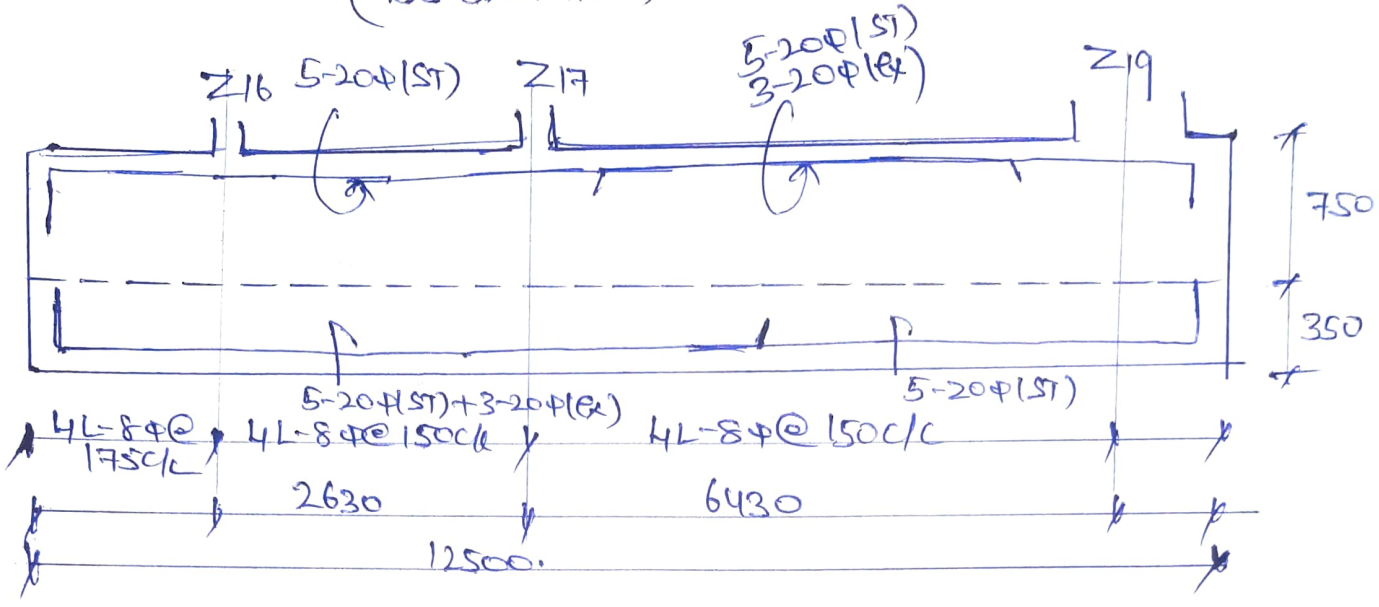 Z16 5-20Φ(ST) Z17 5-20Φ(ST) Z19
3-20Φ(ex)
750
350
5-20Φ(ST)+3-20Φ(ex) 5-20Φ(ST)
4L-8Φ@ 4L-8Φ@150C/C 4L-8Φ@150C/C
175C/C
2630 6430
12500.